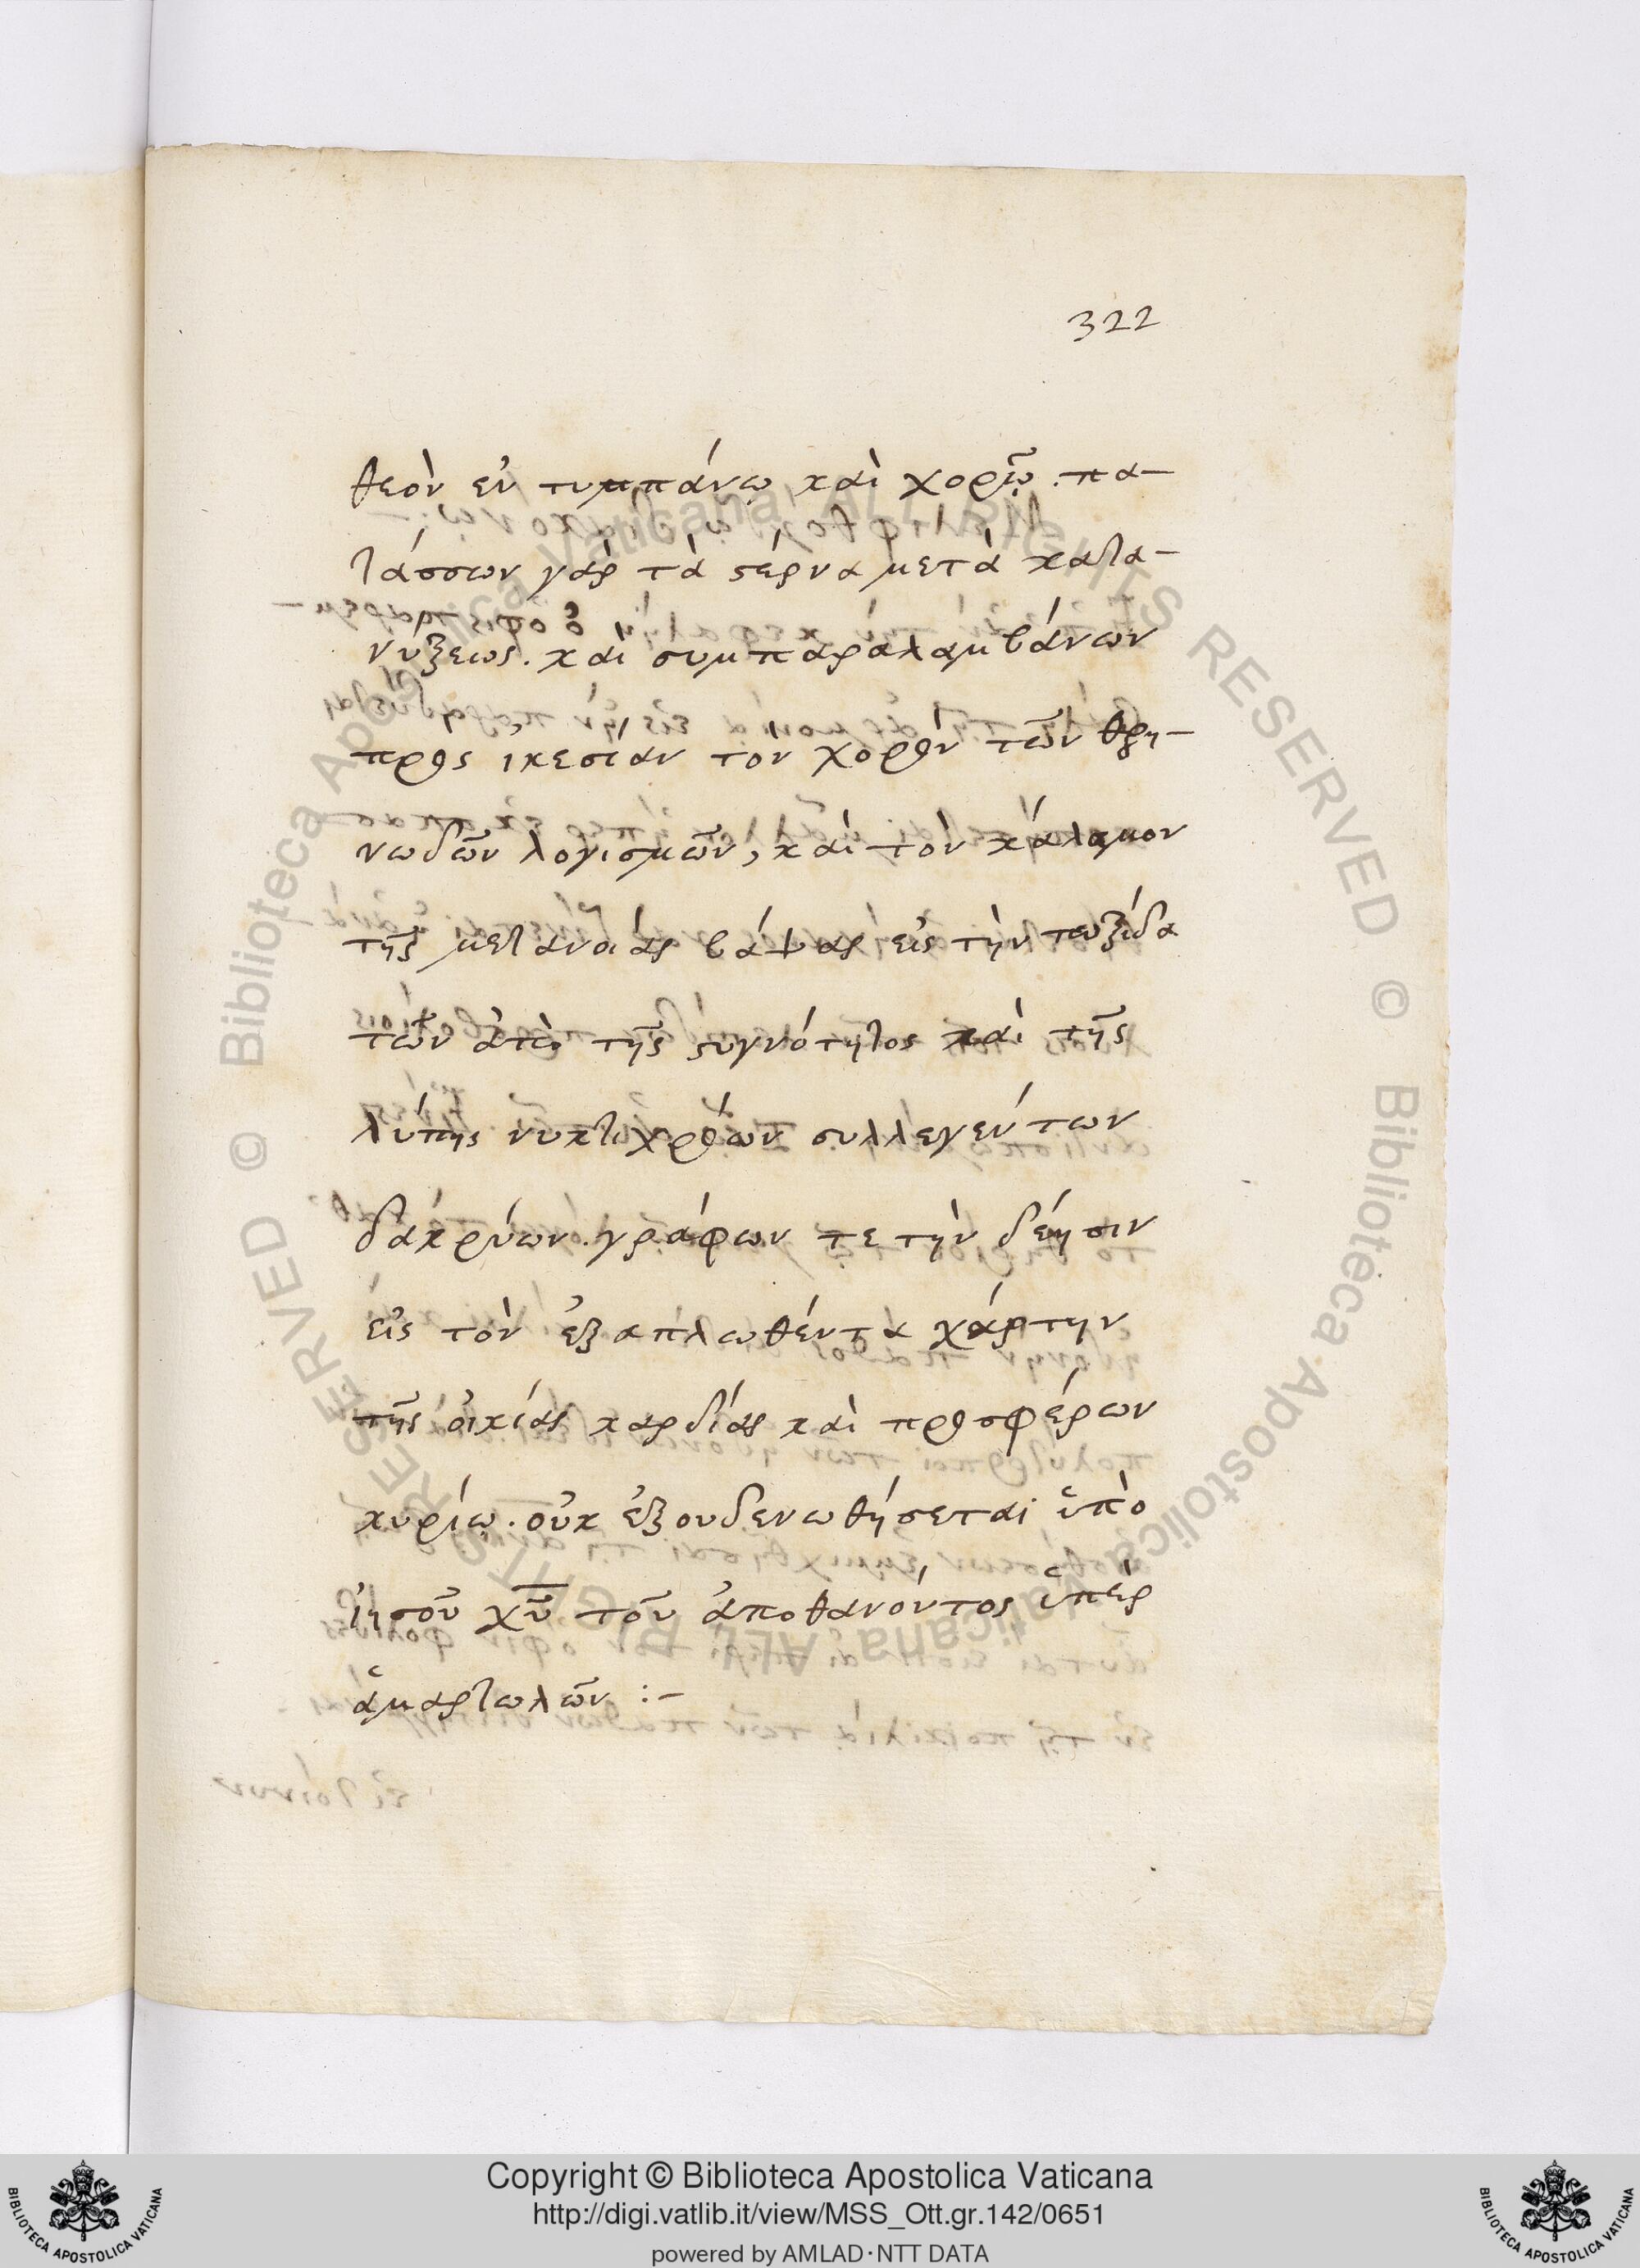 322
θεὸν ἐν τυμπάνῳ καὶ χορῷ. πα-
τάσσων γὰρ τὰ στέρνα μετὰ κατα-
νύξεως. καὶ συμπαραλαμβάνων
πρὸς ἱκεσίαν τὸν χορὸν τῶν θρη-
νωδῶν λογισμῶν, καὶ τὸν κάλαμον
τῆς μετανοίας βάψας εἰς τὴν πυξίδα
τῶν ἀπὸ τῆς στυγνότητος καὶ τῆς
λύπης συλλεγέντων
δακρύων. γράφων τε τὴν δέησιν
εἰς τὸν ἐξαπλωθέντα χάρτην
τῆς οἰκίας καρδίας καὶ προσφέρων
κυρίῳ. οὐκ ἐξουδενωθήσεται ὑπὸ
ἰησοῦ χῦ τοῦ ἀποθανόντος ὑπὲρ
ἁμαρτωλῶν :-
Copyright © Biblioteca Apostolica Vaticana
http://digi.vatlib.it/view/MSS_Ott.gr.142/0651
powered by AMLAD·NTT DATA
BIBLIOTECA APOSTOLICA VATICANA
BIBLIOTECA APOSTOLICA VATICANA